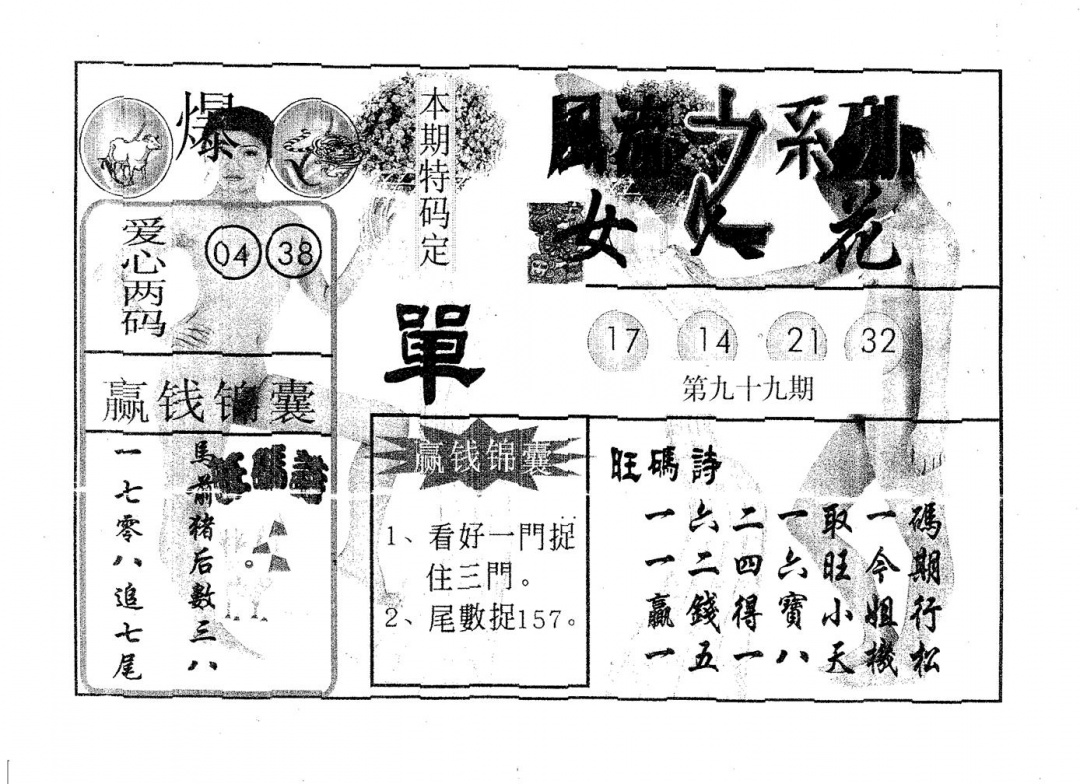 爆
本期特码定
單
爱心两码
04 38
赢钱锦囊
馬前猪后數三八
一七零八追七尾
风流之系列
女人花
17 14 21 32
第九十九期
赢钱锦囊
1、看好一門捉
住三門。
2、尾數捉157。
旺碼詩
一六二一取一碼
一二四六旺今期
赢錢得寶小姐行
一五一八天機松